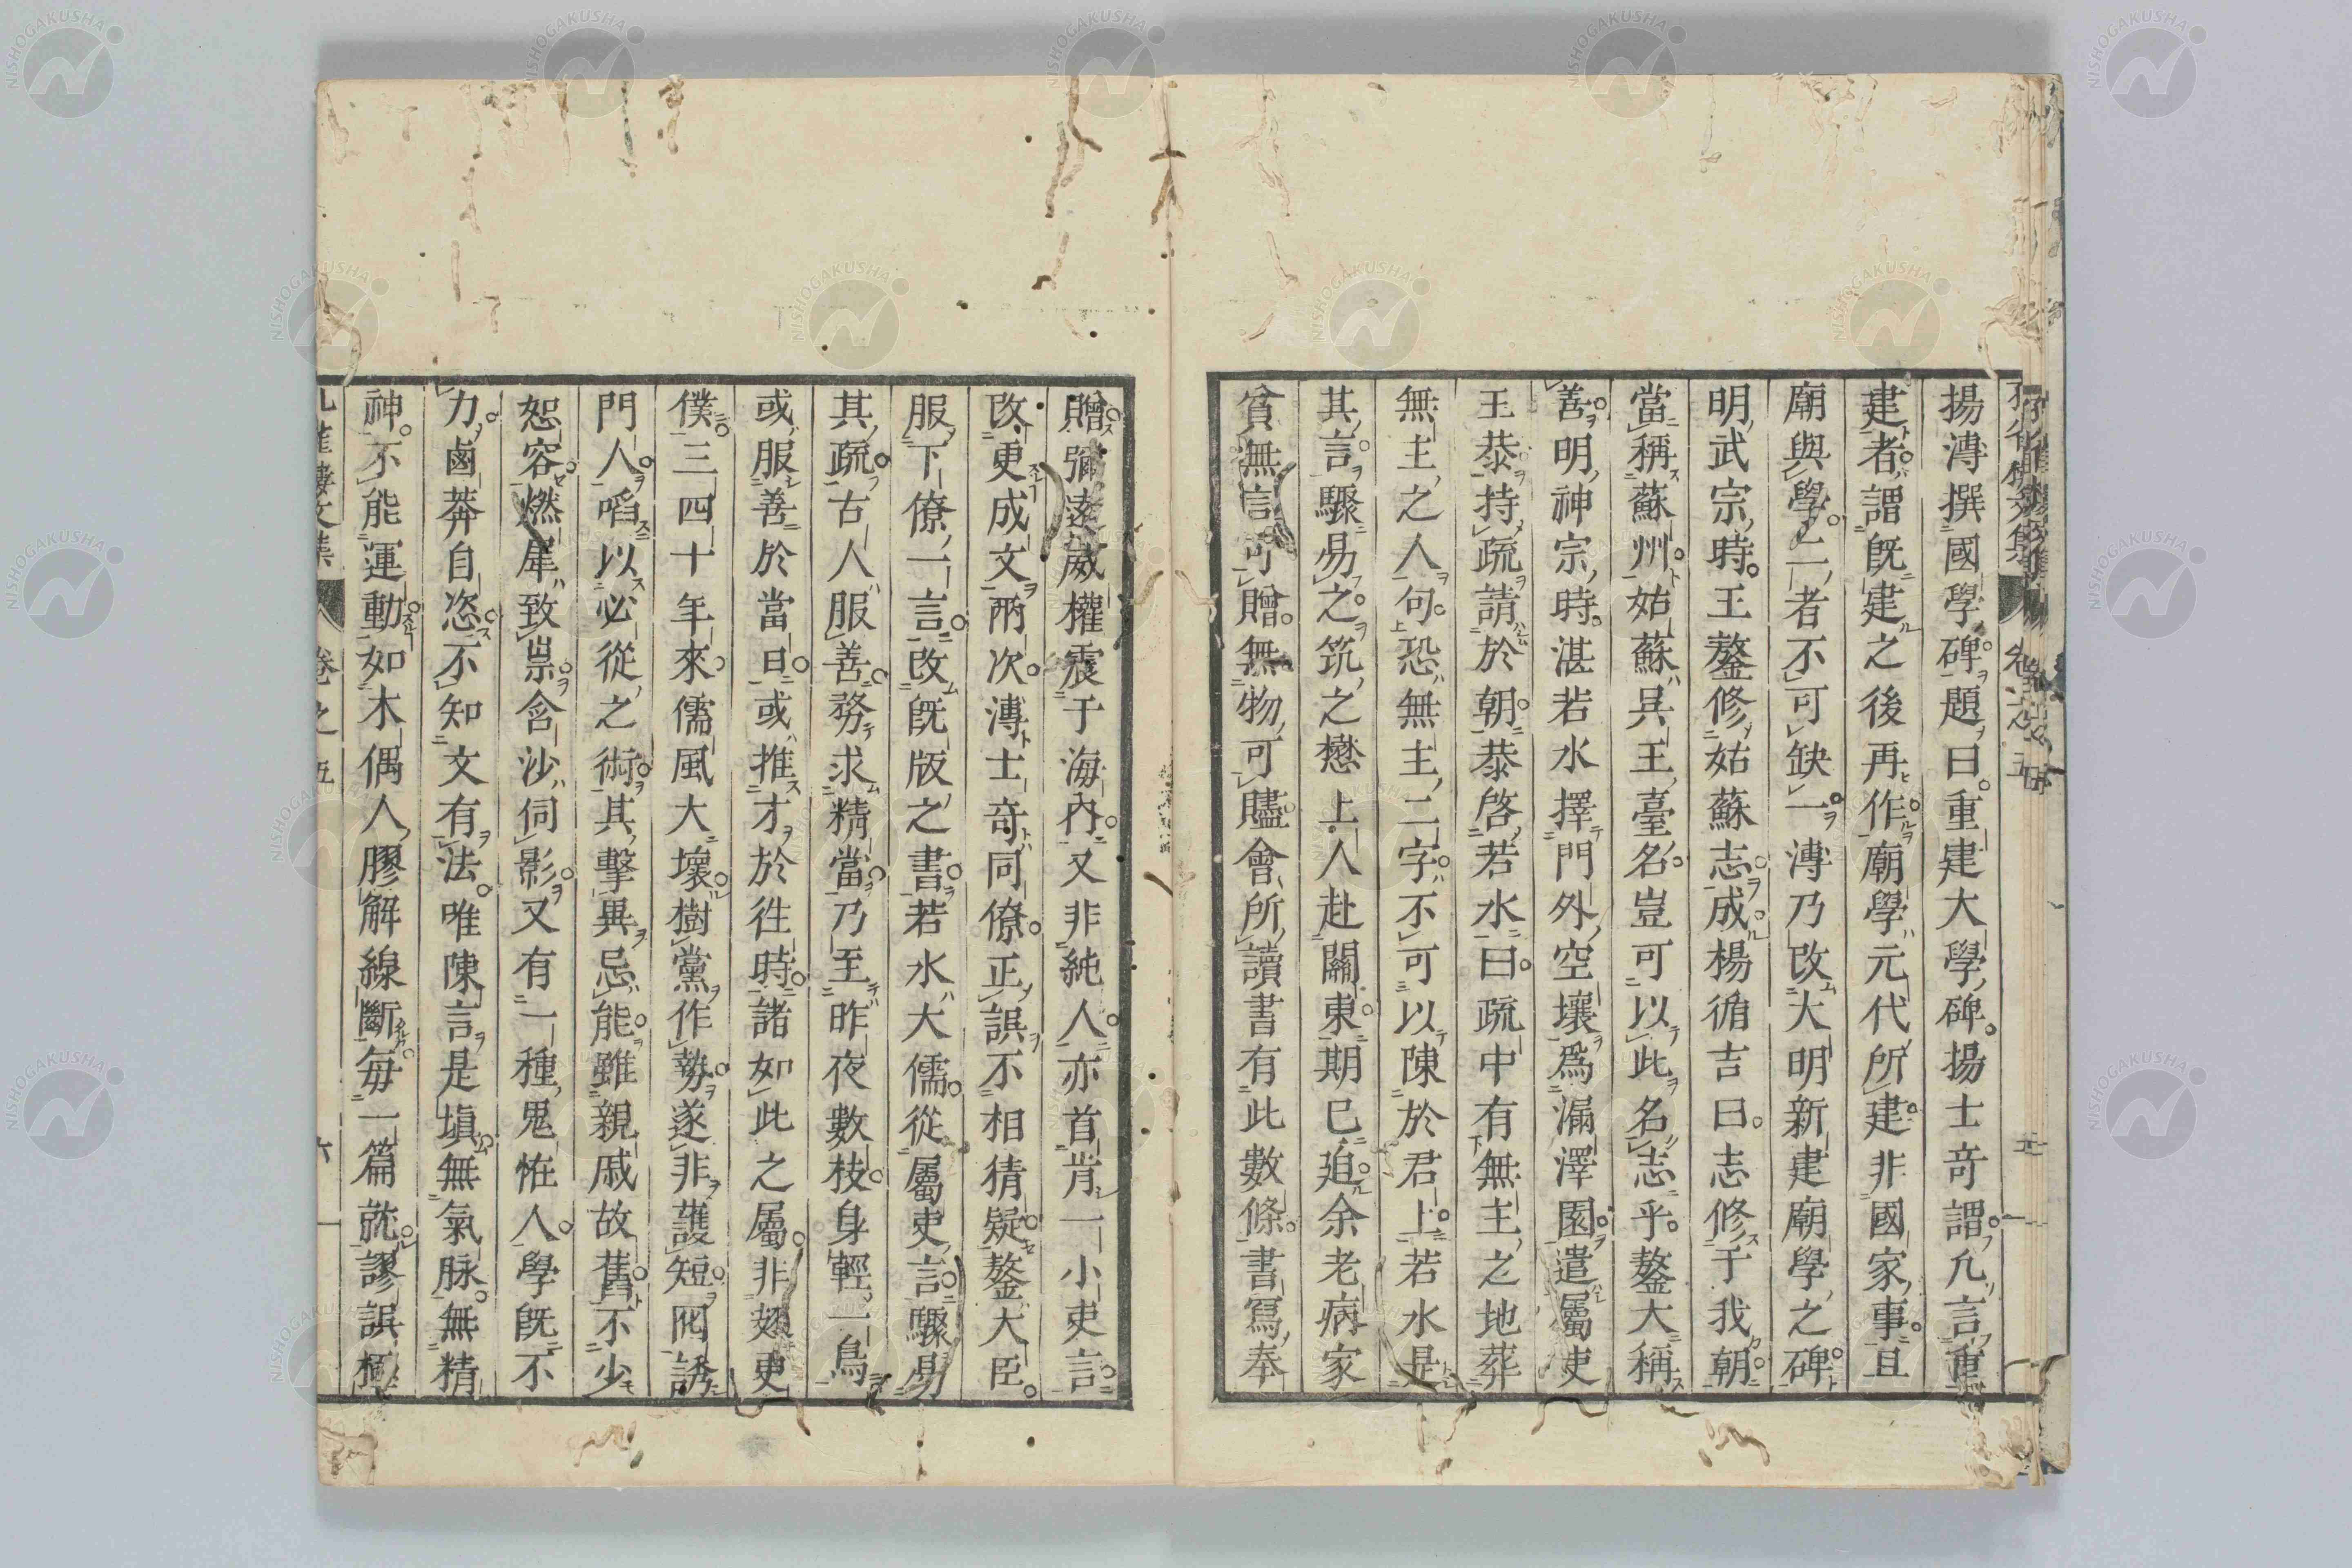 揚溥撰國學碑題曰重建大學碑揚士奇謂凡言重
建者謂既建之後再作廟學元代所建非國家事且
廟與學二者不可缺一溥乃改大明新建廟學之碑
明武宗時王鏊修姑蘇志成楊循吉曰志修于我朝
當稱蘇州姑蘇吳王臺名豈可以此名志乎鏊大稱
善明神宗時湛若水擇門外空壤爲漏澤園遣屬吏
王恭持疏請於朝恭啓若水曰疏中有無主之地葬
無主之人句恐無主二字不可以陳於君上若水是
其言驟易之筑之懋上人赴關東期已廹余老病家
貧無言可贈無物可贐會所讀書有此數條書寫奉
贈彌遠威權震于海內又非純人亦首肯一小吏言
改更成文兩次溥士奇同僚正誤不相猜疑鏊大臣
服下僚一言改既版之書若水大儒從屬吏言驟易
其疏古人服善務求精當乃至昨夜數枝身輕一鳥
或服善於當日或推才於徃時諸如此之屬非趐更
僕三四十年來儒風大壞樹黨作勢遂非護短罔誘
門人啗以必從之術其擊異忌能雖親戚故舊不少
恕容燃犀致祟含沙伺影又有一種鬼恠人學既不
力鹵莽自恣不知文有法唯陳言是塡無氣脉無精
神不能運動如木偶人膠解線斷每一篇就謬誤極
卷之五
六
NISHOGAKUSHA